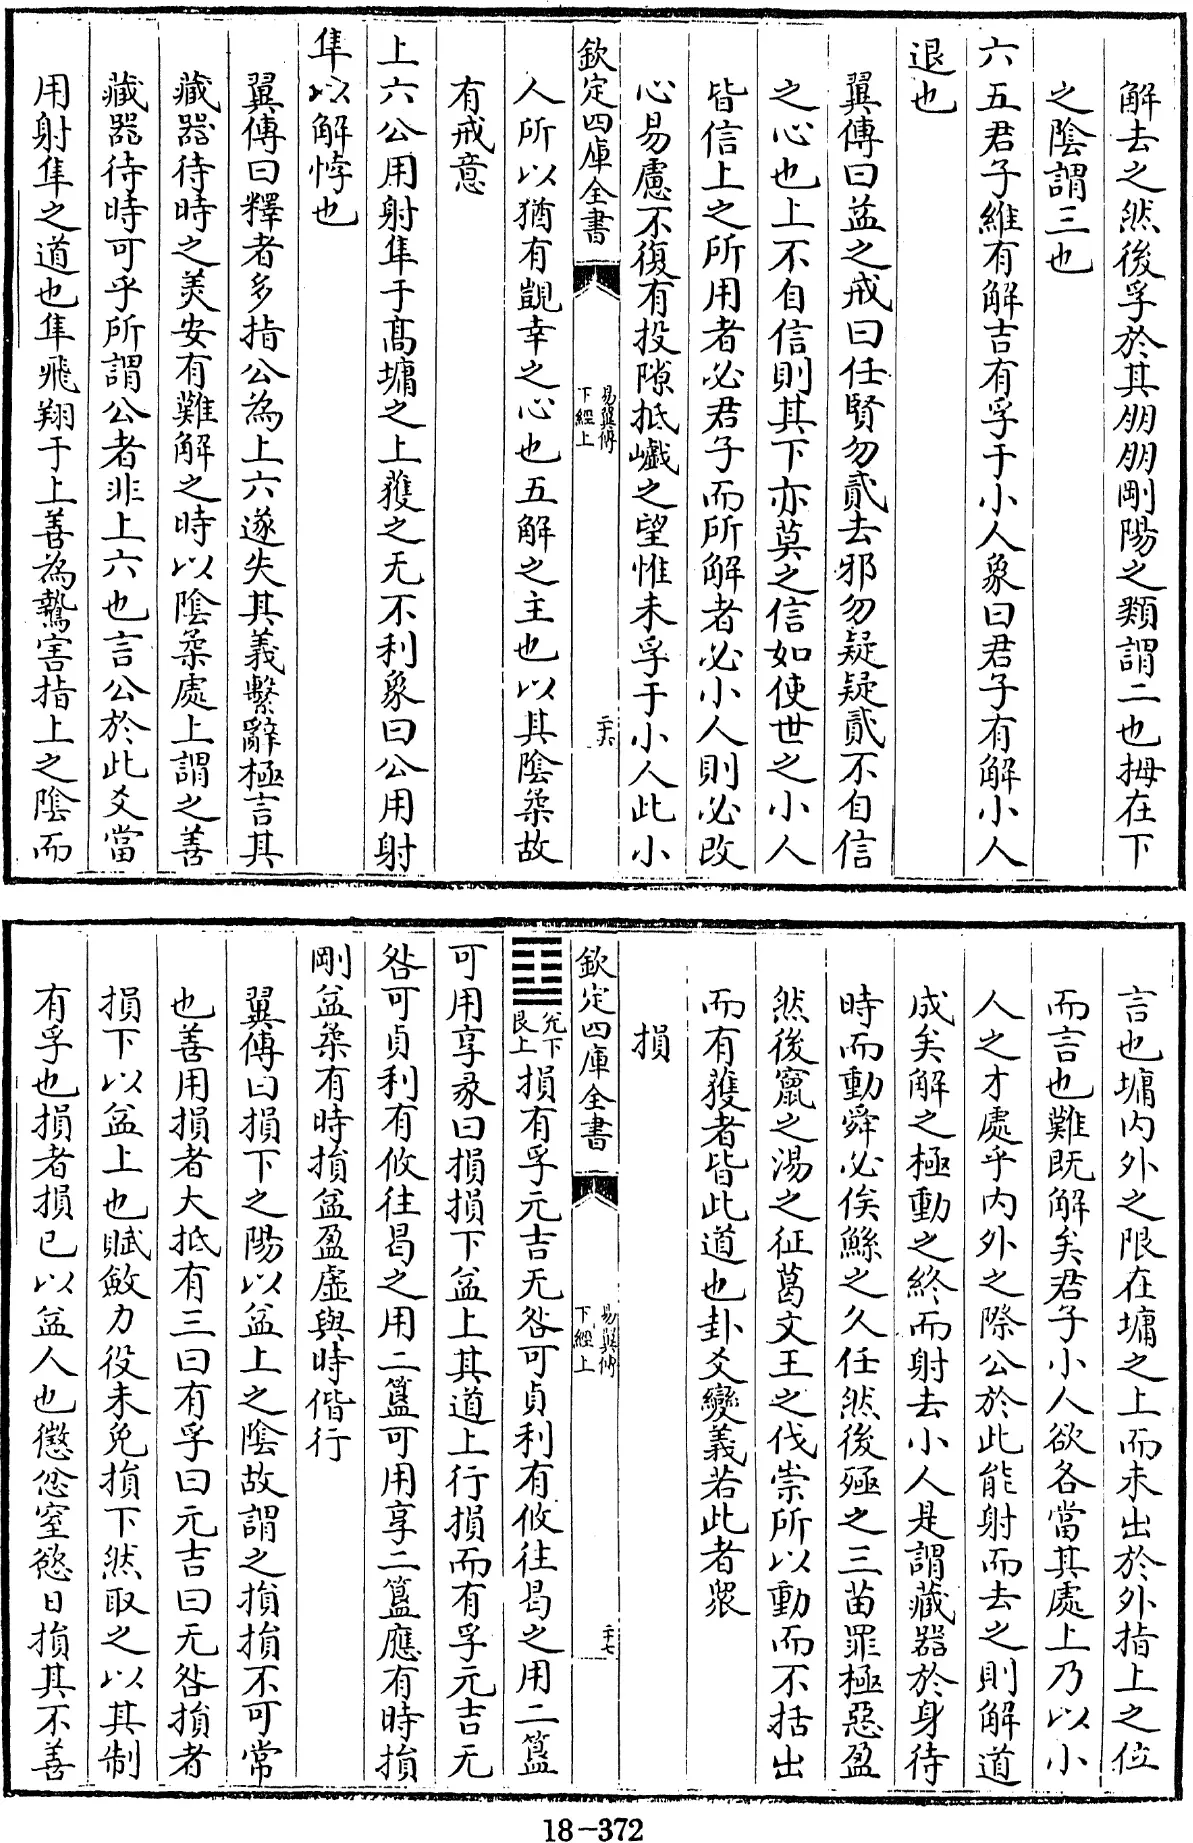 解去之然後孚於其朋朋剛陽之類謂二也拇在下
之陰謂三也
六五君子維有解吉有孚于小人象曰君子有解小人
退也
翼傳曰益之戒曰任賢勿貳去邪勿疑疑貳不自信
之心也上不自信則其下亦莫之信如使世之小人
皆信上之所用者必君子而所解者必小人則必改
心易慮不復有投隙抵巇之望惟未孚于小人此小
欽定四庫全書
易翼傳
下經上
二十六
人所以猶有覬幸之心也五解之主也以其陰柔故
有戒意
上六公用射隼于髙墉之上獲之无不利象曰公用射
隼以解悖也
翼傳曰釋者多指公為上六遂失其義繫辭極言其
藏器待時之美安有難解之時以陰柔處上謂之善
藏器待時可乎所謂公者非上六也言公於此爻當
用射隼之道也隼飛翔于上善為鷙害指上之陰而
言也墉内外之限在墉之上而未出於外指上之位
而言也難既解矣君子小人欲各當其處上乃以小
人之才處乎内外之際公於此能射而去之則解道
成矣解之極動之終而射去小人是謂藏器於身待
時而動舜必俟鯀之久任然後殛之三苗罪極惡盈
然後竄之湯之征葛文王之伐崇所以動而不括出
而有獲者皆此道也卦爻變義若此者衆
損
欽定四庫全書
易翼傳
下經上
二十七
䷨兌下
艮上損有孚元吉无咎可貞利有攸往曷之用二簋
可用享彖曰損損下益上其道上行損而有孚元吉无
咎可貞利有攸往曷之用二簋可用享二簋應有時損
剛益柔有時損益盈虚與時偕行
翼傳曰損下之陽以益上之陰故謂之損損不可常
也善用損者大抵有三曰有孚曰元吉曰无咎損者
損下以益上也賦斂力役未免損下然取之以其制
有孚也損者損已以益人也懲忿窒慾日損其不善
18-372